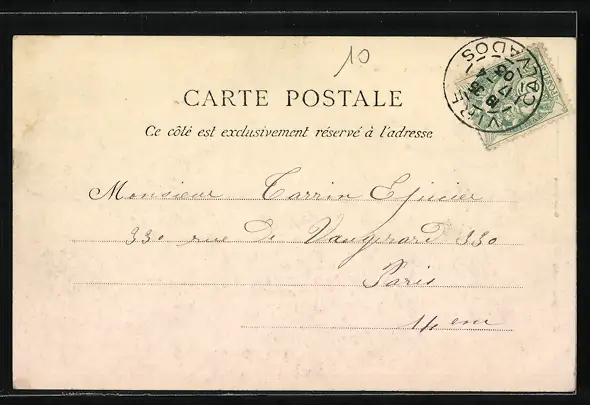 10
CARTE POSTALE
Ce côté est exclusivement réservé à l'adresse
VIRE CALVADOS
Monsieur Carrin Epicier
330 rue de Vaugirard 330
Paris